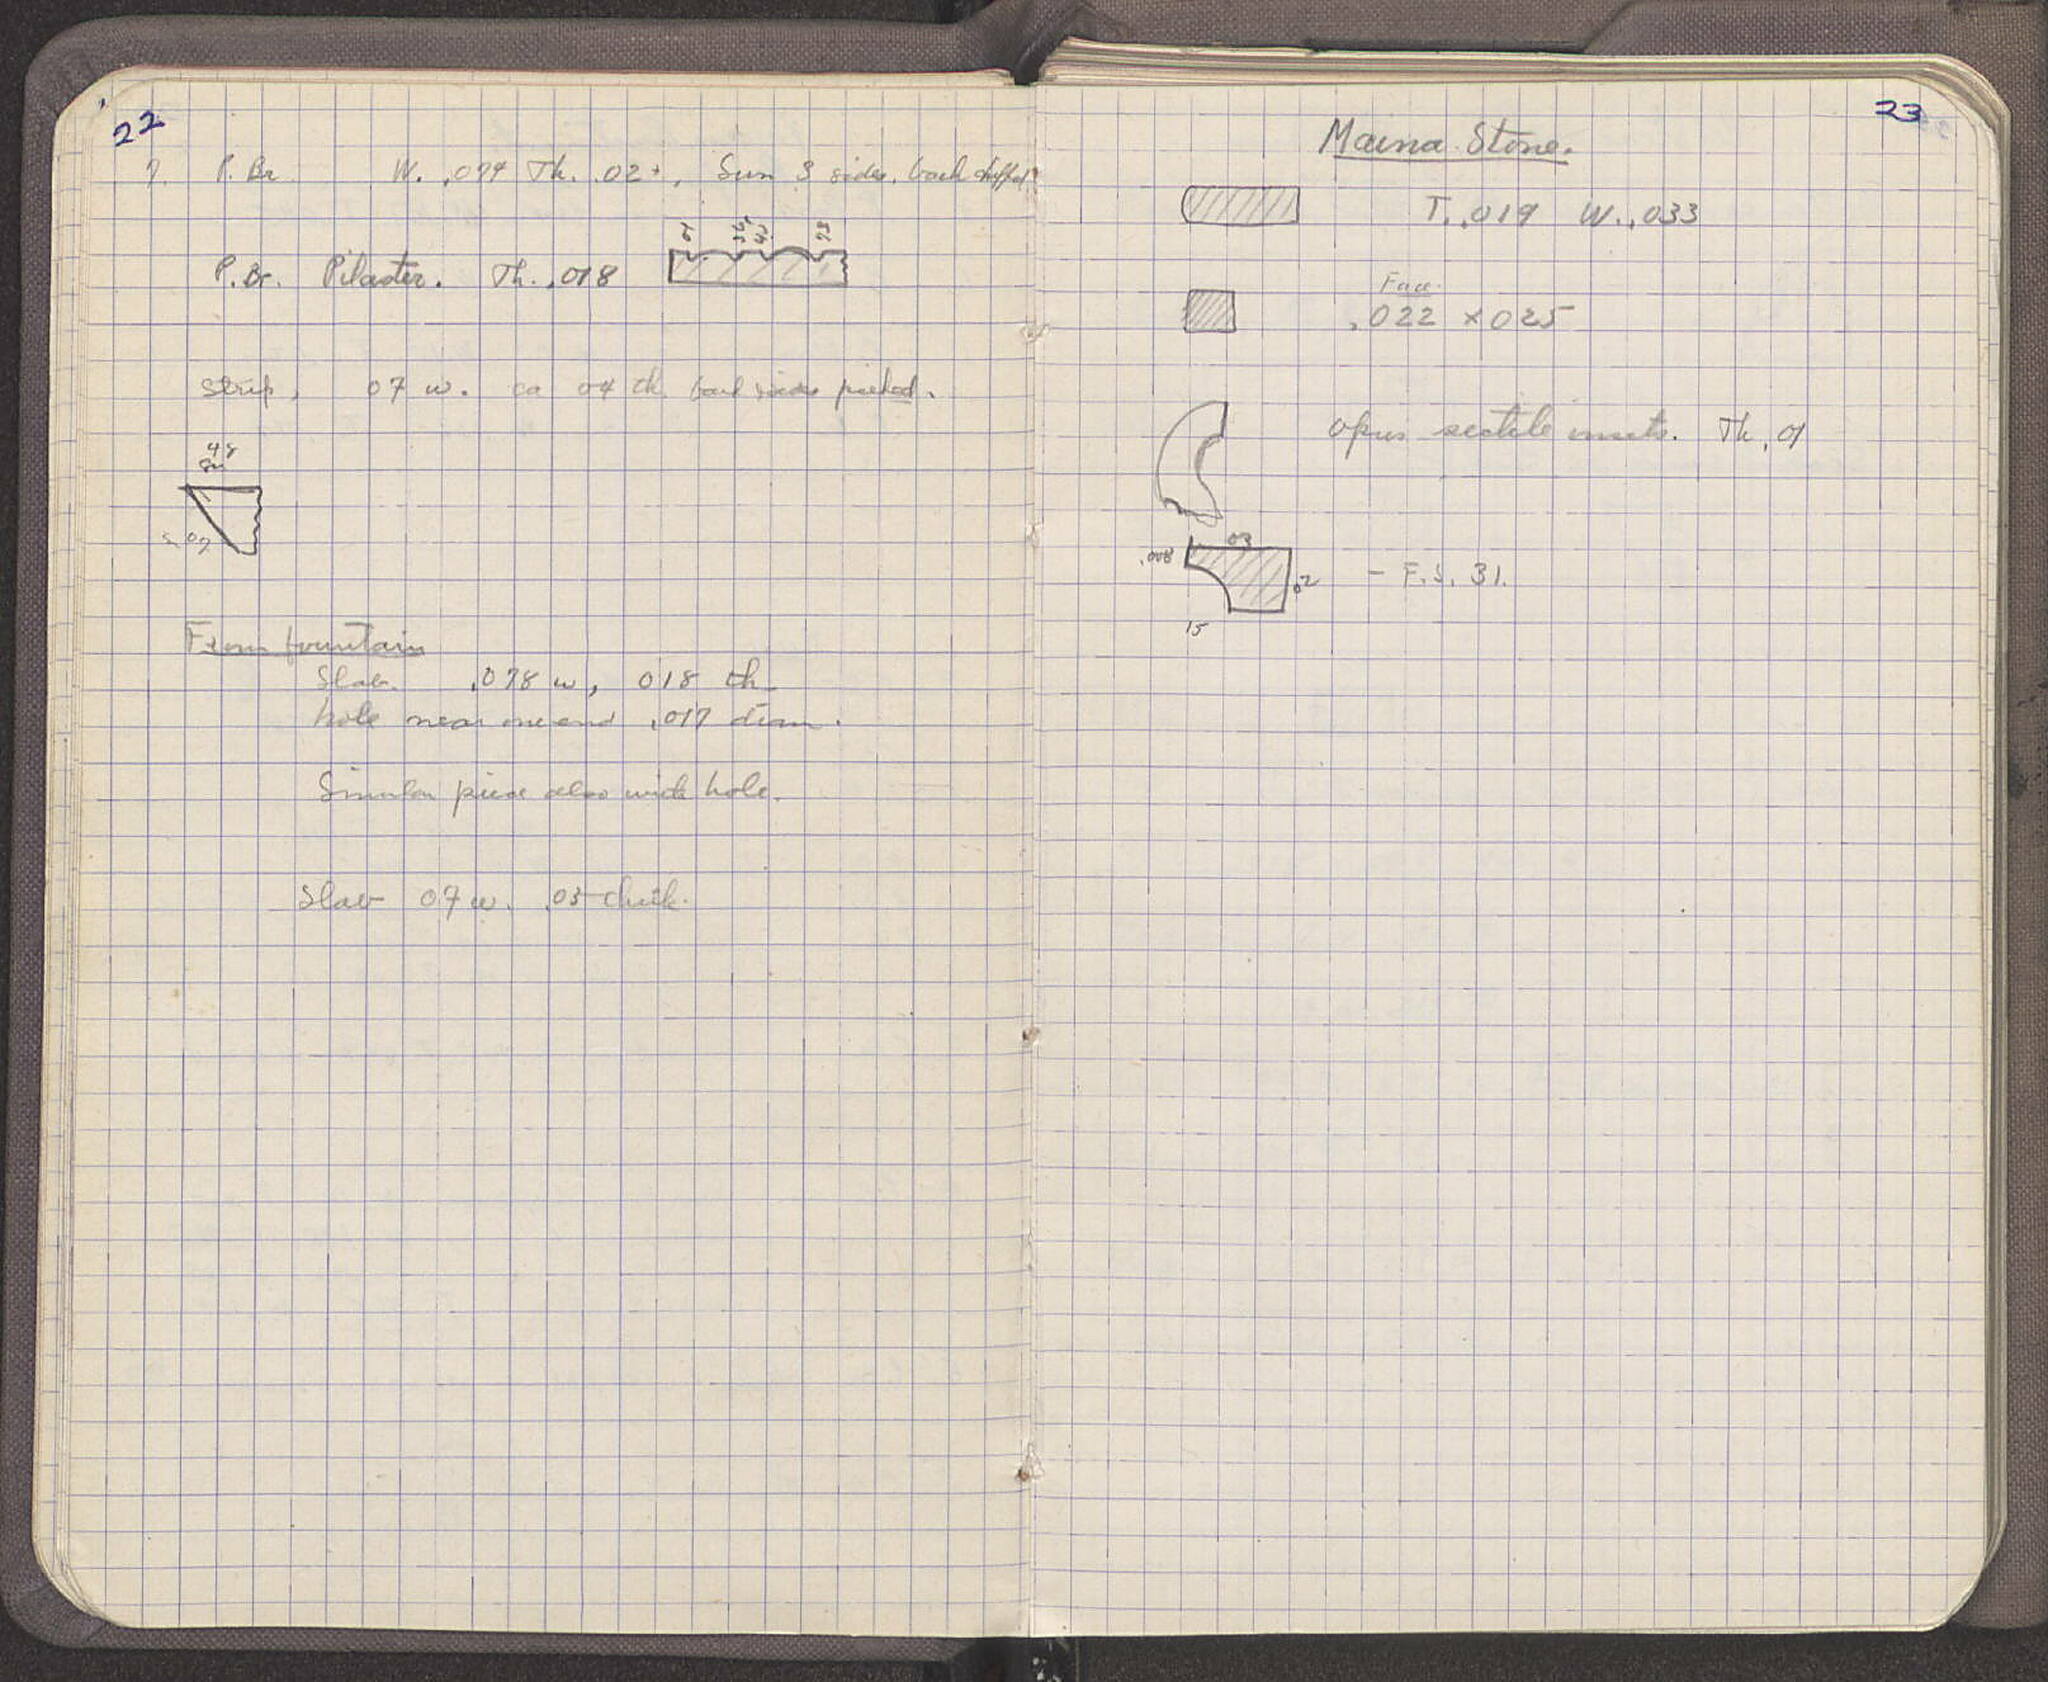 22
7. P. Br. W. .074 Th. .02+, Sm 3 sides, back chipped.
P. Br. Pilaster. Th. .018
01
73
Strip, 07 w. ca 04 th. back picked.
48
Sm
07
From fountain
Slab. .078 w, 018 th
hole near one end .017 diam.
Similar piece also with hole.
Slab 07 w. .03 thick.
23
Maina Stone.
T. .019 W. .033
Face.
.022 × 025
opus sectile insets. Th. 01
.008 03
02 - F.S. 31.
15